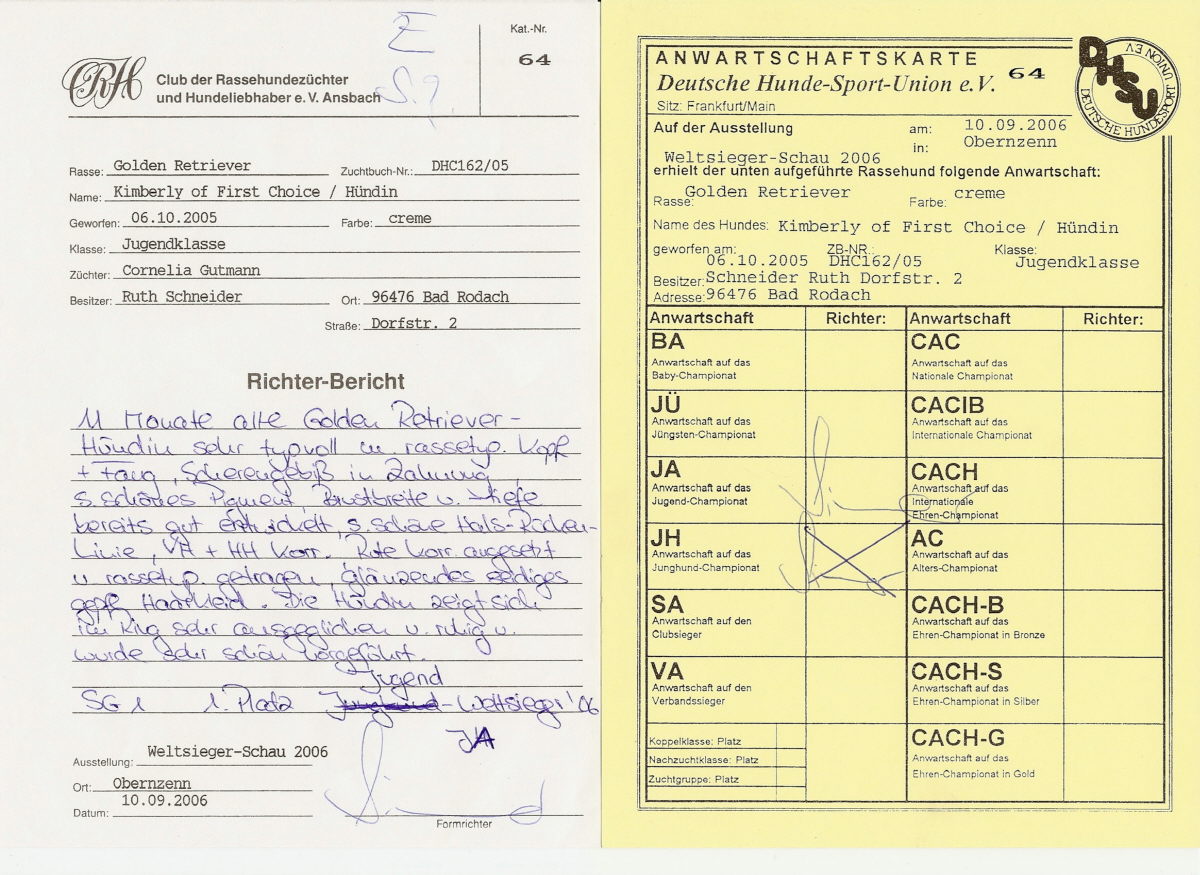 E
Kat.-Nr.
64
CRH
Club der Rassehundezüchter
und Hundeliebhaber e.V. Ansbach
Rasse: Golden Retriever Zuchtbuch-Nr.: DHC162/05
Name: Kimberly of First Choice / Hündin
Geworfen: 06.10.2005 Farbe: creme
Klasse: Jugendklasse
Züchter: Cornelia Gutmann
Besitzer: Ruth Schneider Ort: 96476 Bad Rodach
Straße: Dorfstr. 2
Richter-Bericht
11 Monate alte Golden Retriever-
Hündin sehr typvoll m. rassetyp. Kopf
+ Fang, Scherengebiß in Zahnung,
s. schönes Pigment, Brustbreite u. -tiefe
bereits gut entwickelt, s. schöne Hals-Rücken-
Linie, VH + HH korr. Rute korr. angesetzt
u. rassetyp. getragen, glänzendes seidiges
gepfl. Haarkleid. Die Hündin zeigt sich
im Ring sehr ausgeglichen u. ruhig u.
wurde sehr schön vorgeführt.
Jugend
SG 1 1. Platz -Weltsieger '06
JA
Ausstellung: Weltsieger-Schau 2006
Ort: Obernzenn
Datum: 10.09.2006
Formrichter
ANWARTSCHAFTSKARTE
Deutsche Hunde-Sport-Union e.V. 64
Sitz: Frankfurt/Main
DHSU
DEUTSCHE HUNDESPORT UNION EV
Auf der Ausstellung am: 10.09.2006
in: Obernzenn
Weltsieger-Schau 2006
erhielt der unten aufgeführte Rassehund folgende Anwartschaft:
Rasse: Golden Retriever Farbe: creme
Name des Hundes: Kimberly of First Choice / Hündin
geworfen am: ZB-NR.: Klasse:
06.10.2005 DHC162/05 Jugendklasse
Besitzer: Schneider Ruth Dorfstr. 2
Adresse: 96476 Bad Rodach
Anwartschaft Richter: Anwartschaft Richter:
BA CAC
Anwartschaft auf das Anwartschaft auf das
Baby-Championat Nationale Championat
JÜ CACIB
Anwartschaft auf das Anwartschaft auf das
Jüngsten-Championat Internationale Championat
JA CACH
Anwartschaft auf das Anwartschaft auf das
Jugend-Championat Internationale
Ehren-Championat
JH AC
Anwartschaft auf das Anwartschaft auf das
Junghund-Championat Alters-Championat
SA CACH-B
Anwartschaft auf den Anwartschaft auf das
Clubsieger Ehren-Championat in Bronze
VA CACH-S
Anwartschaft auf den Anwartschaft auf das
Verbandssieger Ehren-Championat in Silber
Koppelklasse: Platz CACH-G
Nachzuchtklasse: Platz Anwartschaft auf das
Zuchtgruppe: Platz Ehren-Championat in Gold